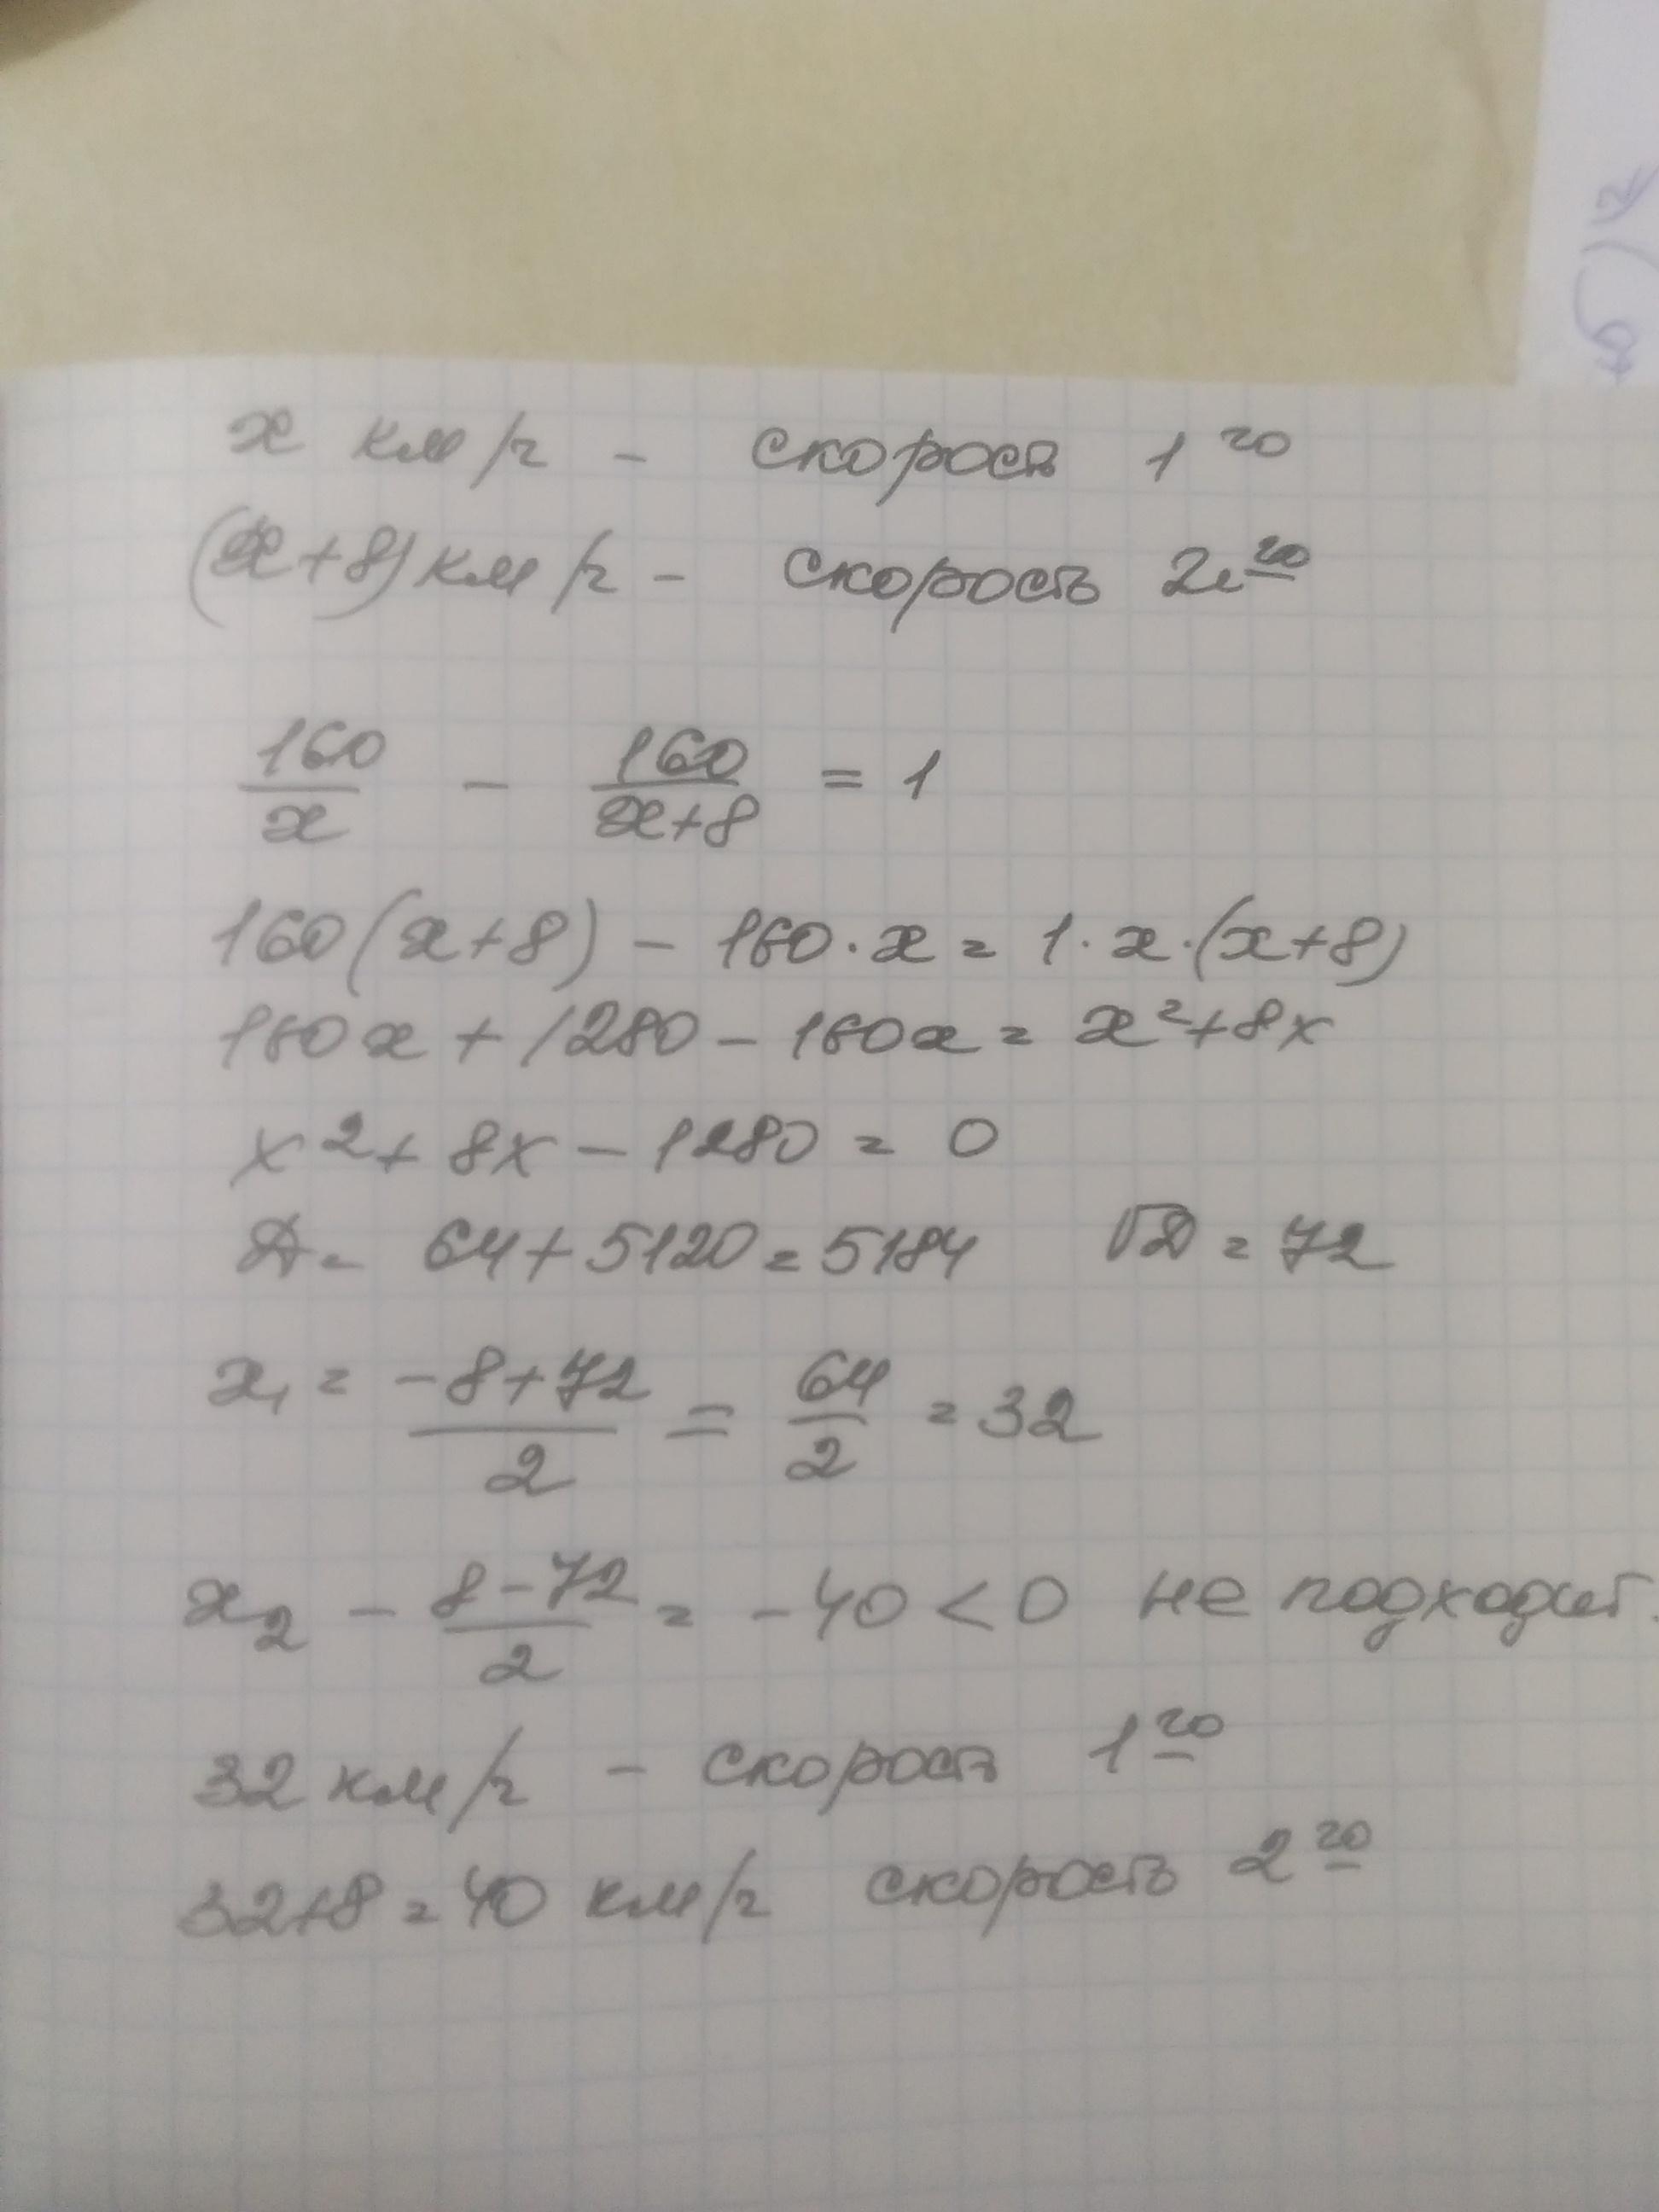 x км/ч - скорость 1 го
(x+8) км/ч - скорость 2 го
160/x - 160/(x+8) = 1
160(x+8) - 160·x = 1·x·(x+8)
160x + 1280 - 160x = x²+8x
x²+8x-1280 = 0
Д = 64+5120=5184 √Д = 72
x₁ = (-8+72)/2 = 64/2 = 32
x₂ - (8-72)/2 = -40 < 0 не подходит.
32 км/ч - скорость 1 го
32+8=40 км/ч скорость 2 го